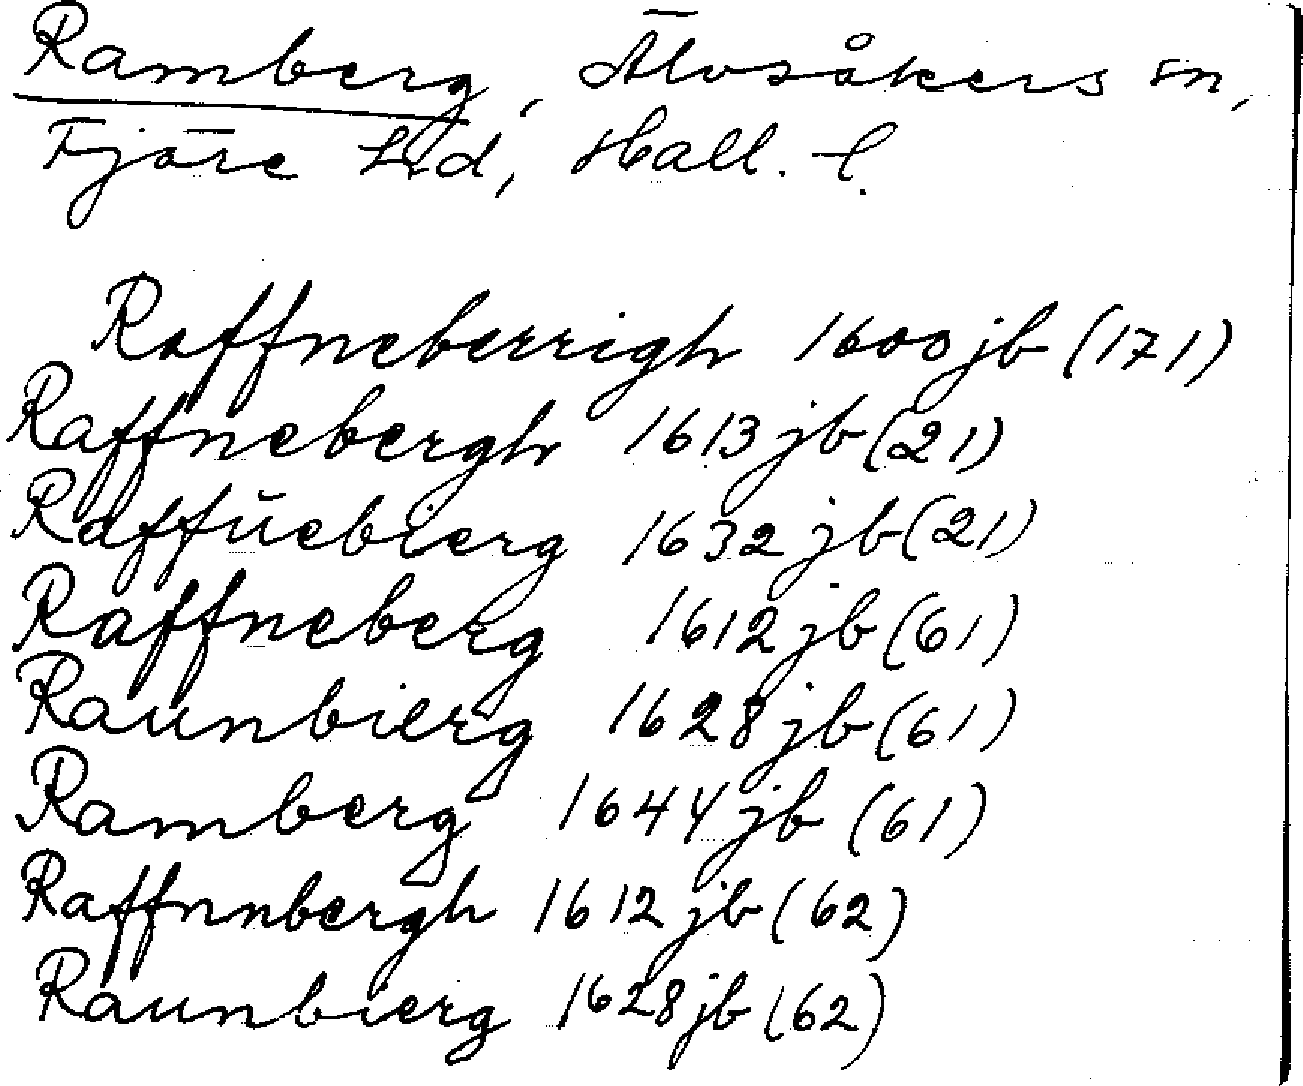 Ramberg, Älvsåkers sn,
Fjäre hd, Hall. l.
Raffneberrigh 1600 jb (171)
Raffnebergh 1613 jb (21)
Raffŭebierg 1632 jb (21)
Raffneberg 1612 jb (61)
Raunbierg 1628 jb (61)
Ramberg 1644 jb (61)
Raffnnbergh 1612 jb (62)
Raunbierg 1628 jb (62)